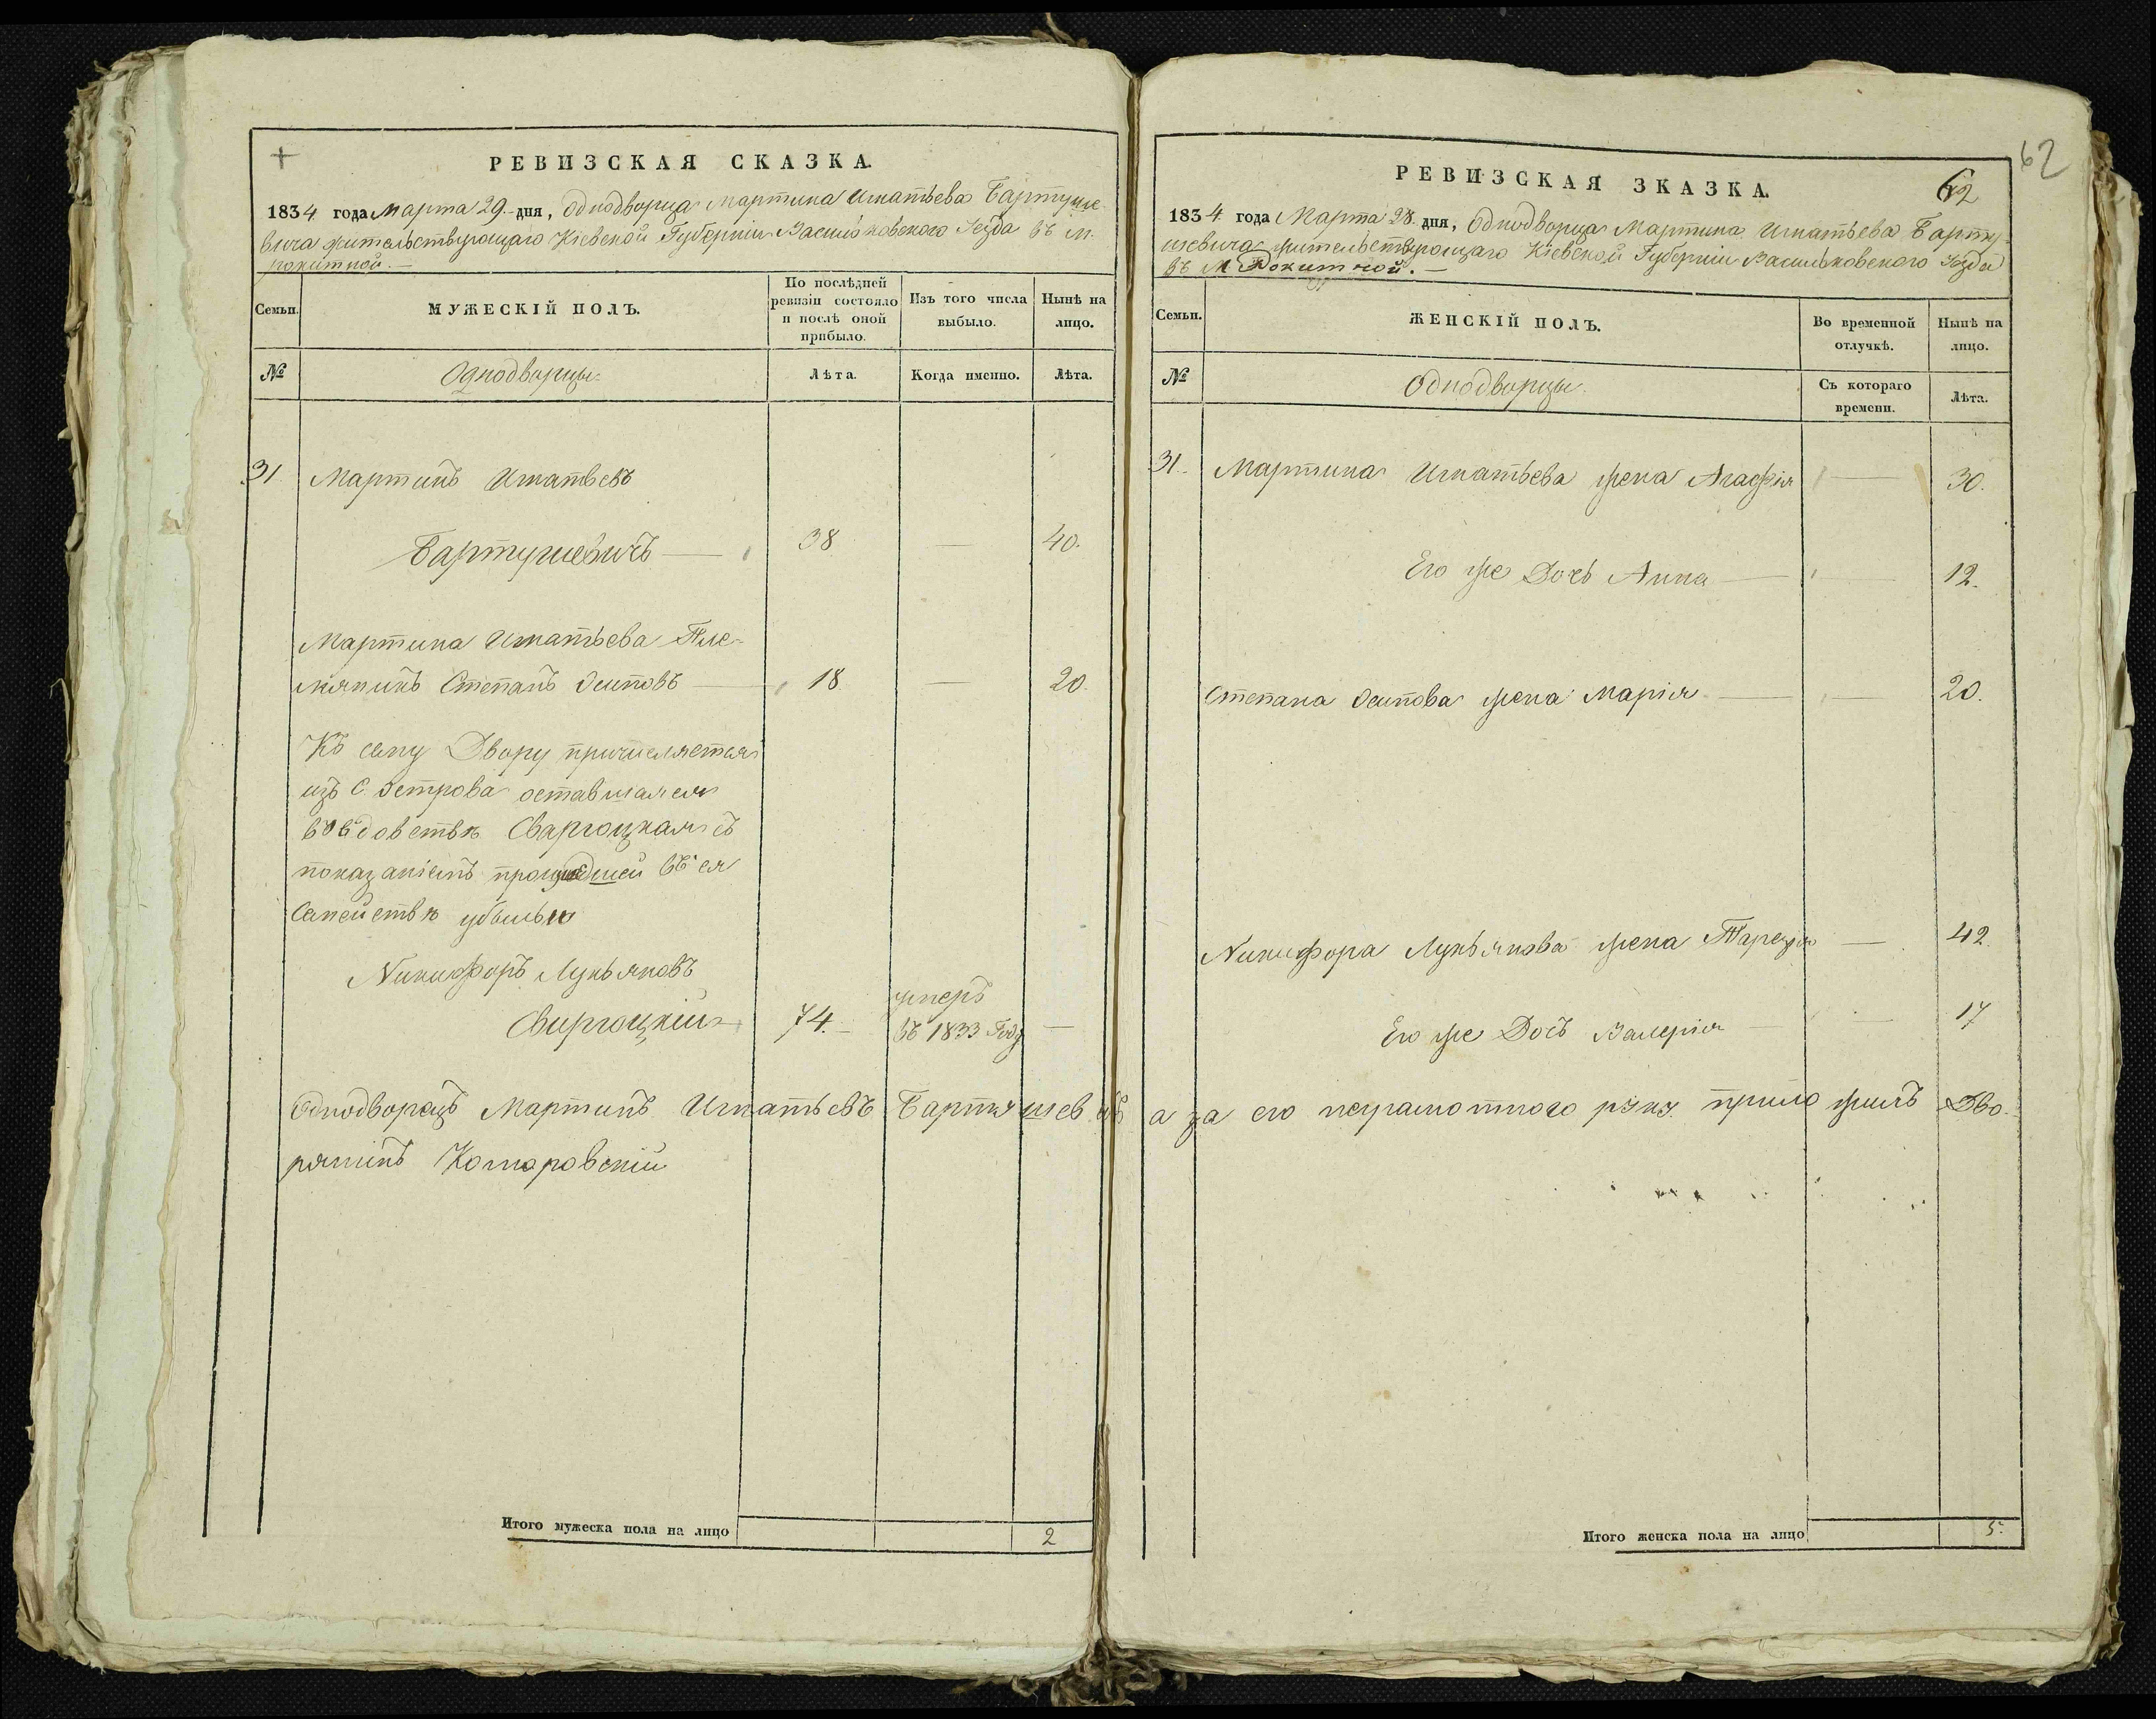 РЕВИЗСКАЯ СКАЗКА.
1834 года Марта 29. дня, Однодворца Мартина Игнатьева Бартуше-
вича жительствующаго Кіевской Губерніи Васильковского Уезда въ м.
рокитной.—
Семьи.
МУЖЕСКІЙ ПОЛЪ.
По послѣдней
ревизіи состояло
и послѣ оной
прибыло.
Изъ того числа
выбыло.
Нынѣ на
лицо.
№
Однодворцы.
Лѣта.
Когда именно.
Лѣта.
31 Мартинъ Игнатьевъ
Бартушевичъ — 38 — 40.
Мартина Игнатьева Пле-
мянникъ Степанъ Осиповъ — 18 — 20.
Къ сему Двору причисляется
изъ С. Острова оставшаяся
во вдовствѣ Свиргоцкая съ
показаніемъ прошедшей въ ея
Семействѣ убыли
Никифоръ Лукьяновъ
Свиргоцкій — 74. — умеръ
въ 1833 Году —
Однодворецъ Мартинъ Игнатьевъ Бартушевичъ а за его неграмотного руку приложилъ Дво-
рянинъ Комаровскій
Итого мужеска пола на лицо 2
62
62
РЕВИЗСКАЯ ЗКАЗКА.
1834 года Марта 28. дня, Однодворца Мартина Игнатьева Барту-
шевича жительствующаго Кіевской Губерніи Васильковского Уезда
въ М Рокитной.—
Семьи.
ЖЕНСКІЙ ПОЛЪ.
Во временной
отлучкѣ.
Нынѣ на
лицо.
№
Однодворцы.
Съ котораго
времени.
Лѣта.
31. Мартина Игнатьева жена Агафія — 30.
Его же Дочь Анна — 12.
Степана Осипова жена Марія — 20.
Никифора Лукьянова жена Терезія — 42.
Его же Дочь Валерія — 17
Итого женска пола на лицо 5.